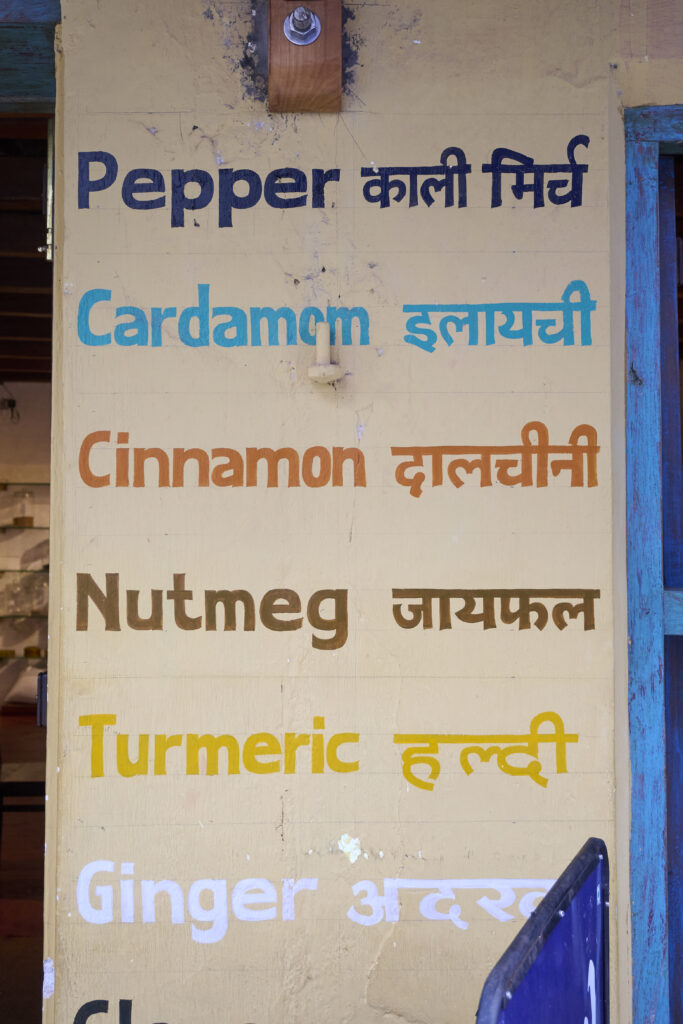 Pepper काली मिर्च
Cardamom इलायची
Cinnamon दालचीनी
Nutmeg जायफल
Turmeric हल्दी
Ginger